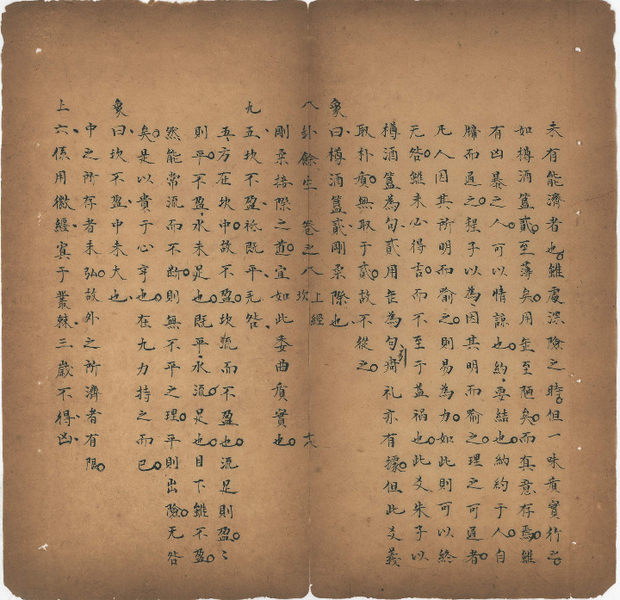 未有能濟者也雖處深險之時但一味質實行之
如樽酒簋貳至薄矣用缶至陋矣而真意存焉雖
有凶暴之人可以情諒也約要結也納約于人自
牖而通之程子以為因其明而喻之理之可通者
凡人因其所明而喻之則易為力如此則可以終
无咎雖未必得吉而不至于蓋禍也此爻朱子以
樽酒簋為句貳用缶為句引齋礼亦有據但此爻義
取朴質無取于貳故不從之
象曰樽酒簋貳剛柔際也
八卦餘生 卷之八 坎 上經 十六
剛柔接際之道宜如此委曲質實也
九五坎不盈祇既平无咎
五方在坎中故不盈坎甃而不盈也流足則盈〻
則平不盈水未足也既平水流足也目下雖不盈
然能常流而不斷則無不平之理平則出險无咎
矣是以貴于心亨也在九力持之而已
象曰坎不盈中未大也
中之所存者未弘故外之所濟者有限
上六係用徽纆寘于叢棘三歲不得凶